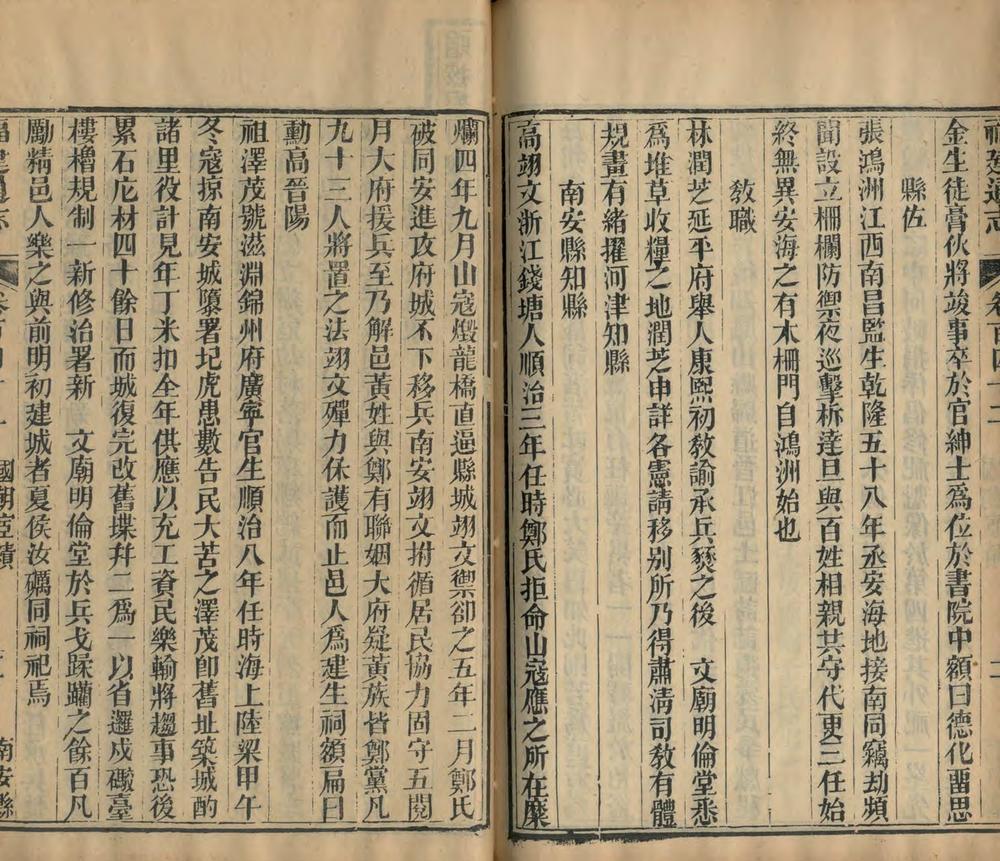 福建通志 卷百四十二
金生徒膏伙將竣事卒於官紳士爲位於書院中額曰德化畱思
縣佐
張鴻洲江西南昌監生乾隆五十八年丞安海地接南同竊刦頻
聞設立柵欄防禦夜巡擊柝達旦與百姓相親共守代更三任始
終無異安海之有木柵門自鴻洲始也
敎職
林潤芝延平府舉人康熙初敎諭承兵燹之後 文廟明倫堂悉
爲堆草收糧之地潤芝申詳各憲請移别所乃得肅淸司敎有體
規畫有緒擢河津知縣
南安縣知縣
高翊文浙江錢塘人順治三年任時鄭氏拒命山寇應之所在糜
爛四年九月山寇燬龍橋直逼縣城翊文禦卻之五年二月鄭氏
破同安進攻府城不下移兵南安翊文拊循居民協力固守五閱
月大府援兵至乃解邑黃姓與鄭有聯姻大府疑黃族皆鄭黨凡
九十三人將置之法翊文殫力保護而止邑人爲建生祠額扁曰
勳高晉陽
祖澤茂號滋淵錦州府廣寧官生順治八年任時海上陸梁甲午
冬寇掠南安城隳署圮虎患數告民大苦之澤茂卽舊址築城酌
諸里役計見年丁米扣全年供應以充工資民樂輸將趨事恐後
累石庀材四十餘日而城復完改舊堞幷二爲一以省邏戍礮臺
樓櫓規制一新修治署新 文廟明倫堂於兵戈蹂躪之餘百凡
勵精邑人樂之與前明初建城者夏侯汝礪同祠祀焉
福建通志 國朝宦績 南安縣